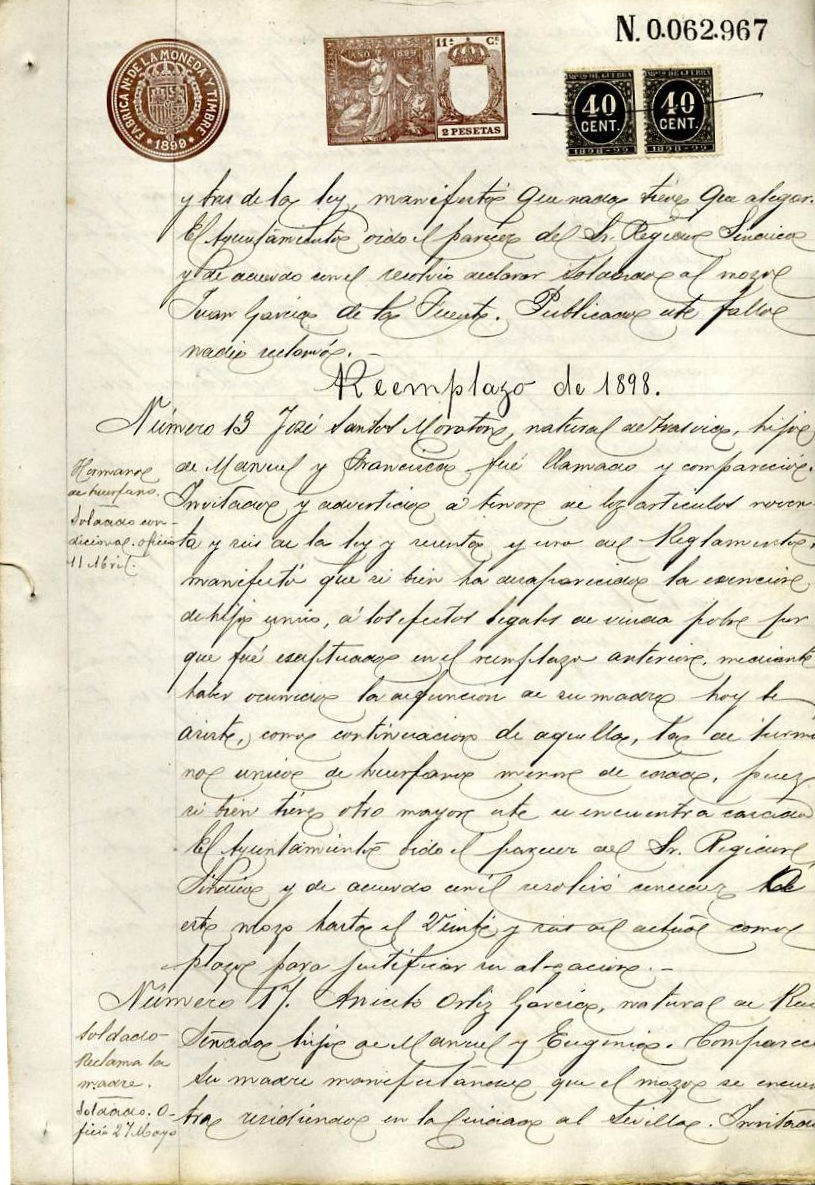 N. 0.062.967
FABRICA N. DE LA MONEDA Y TIMBRE
1899
AÑO 1899
11ª Cª
2 PESETAS
IMPto DE GUERRA
40
CENT.
1898-99
IMPto DE GUERRA
40
CENT.
1898-99
y tres de la ley, manifestó que nada tiene que alegar.
El Ayuntamiento oido el parecer del Sr. Regidor Sindico
y de acuerdo con el resolvió declarar soldado al mozo
Juan Garcia de la Fuente. Publicado este fallo
nadie reclamó.-
Reemplazo de 1898.
Número 13 José Santos Moratón, natural de, hijo
Hermano
de huerfano.
Soldado con-
dicional. oficio
11 Abril.
de Manuel y Francisca fué llamado y compareció.
Invitado y advertido á tenor de los artículos noven-
ta y seis de la ley y sesenta y uno del Reglamento,
manifestó que si bien ha desaparecido la exención
de hijo unico, á los efectos legales de viuda pobre por
que fué esceptuado en el reemplazo anterior, mediante
haber ocurrido la defuncion de su madre hoy le
asiste, como continuacion de aquella, la de herma
no unico de huerfano menor de edad, pues
si bien tiene otro mayor este se encuentra casado
El Ayuntamiento oido el parecer del Sr. Regidor
Sindico y de acuerdo con él resolvió conceder á
este mozo hasta el Veinte y seis del actual como
plazo para justificar su alegacion.-
Número 17. Aniceto Ortiz Garcia, natural de Rei
Soldado
Reclama la
madre.
Soldado. O-
ficio 27 Mayo
Señado hijo de Manuel y Eugenia. Comparece
su madre manifestando que el mozo se encuen
tra residiendo en la Ciudad de Sevilla. Invitada